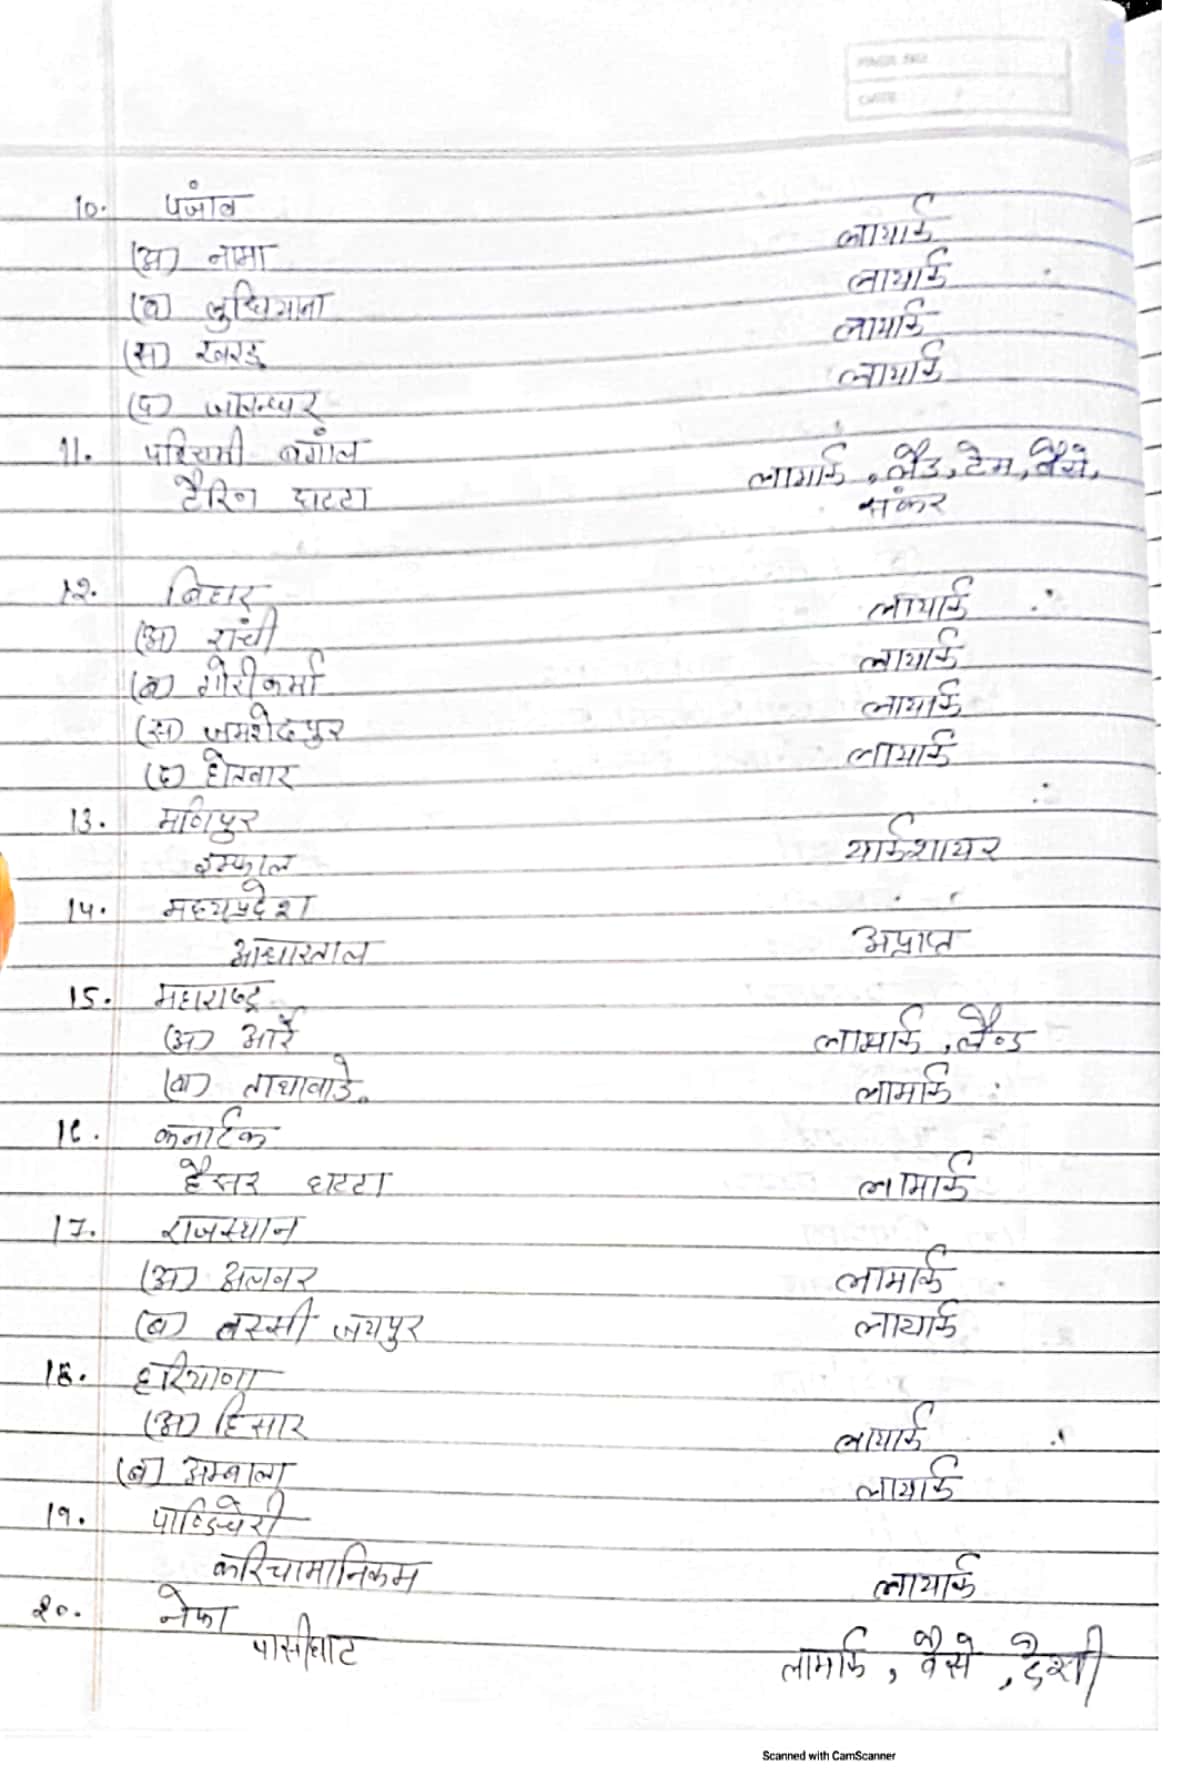 PAGE NO.
DATE
10. पंजाव
(अ) नाभा लायार्क
(ब) लुधियाना लायार्क
(स) खरड़ लायार्क
(द) जालन्धर लायार्क
11. पश्चिमी बगांल
टैरिन घाटटा लामार्क, लैंड, टेम, वैसे,
संकर
12. बिहार
(अ) रांची लायार्क
(ब) गौरीकर्मा लायार्क
(स) जमशेदपुर लायार्क
(द) होतवार लायार्क
13. मणिपुर
इम्फाल यार्कशायर
14. मध्यप्रदेश
आधारताल अप्राप्त
15. महाराष्ट्र
(अ) आरे लामार्क, लैण्ड
(ब) लामार्क
16. कर्नाटक
हैसर घाटटा लामार्क
17. राजस्थान
(अ) अलवर लामार्क
(ब) बस्सी जयपुर लायार्क
18. हरियाणा
(अ) हिसार लायार्क
(ब) अम्बाला लायार्क
19. पाण्डिचेरी
करिचामानिकम लायार्क
20. नेफा
पासीघाट लामार्क, वैसे, देशी
Scanned with CamScanner